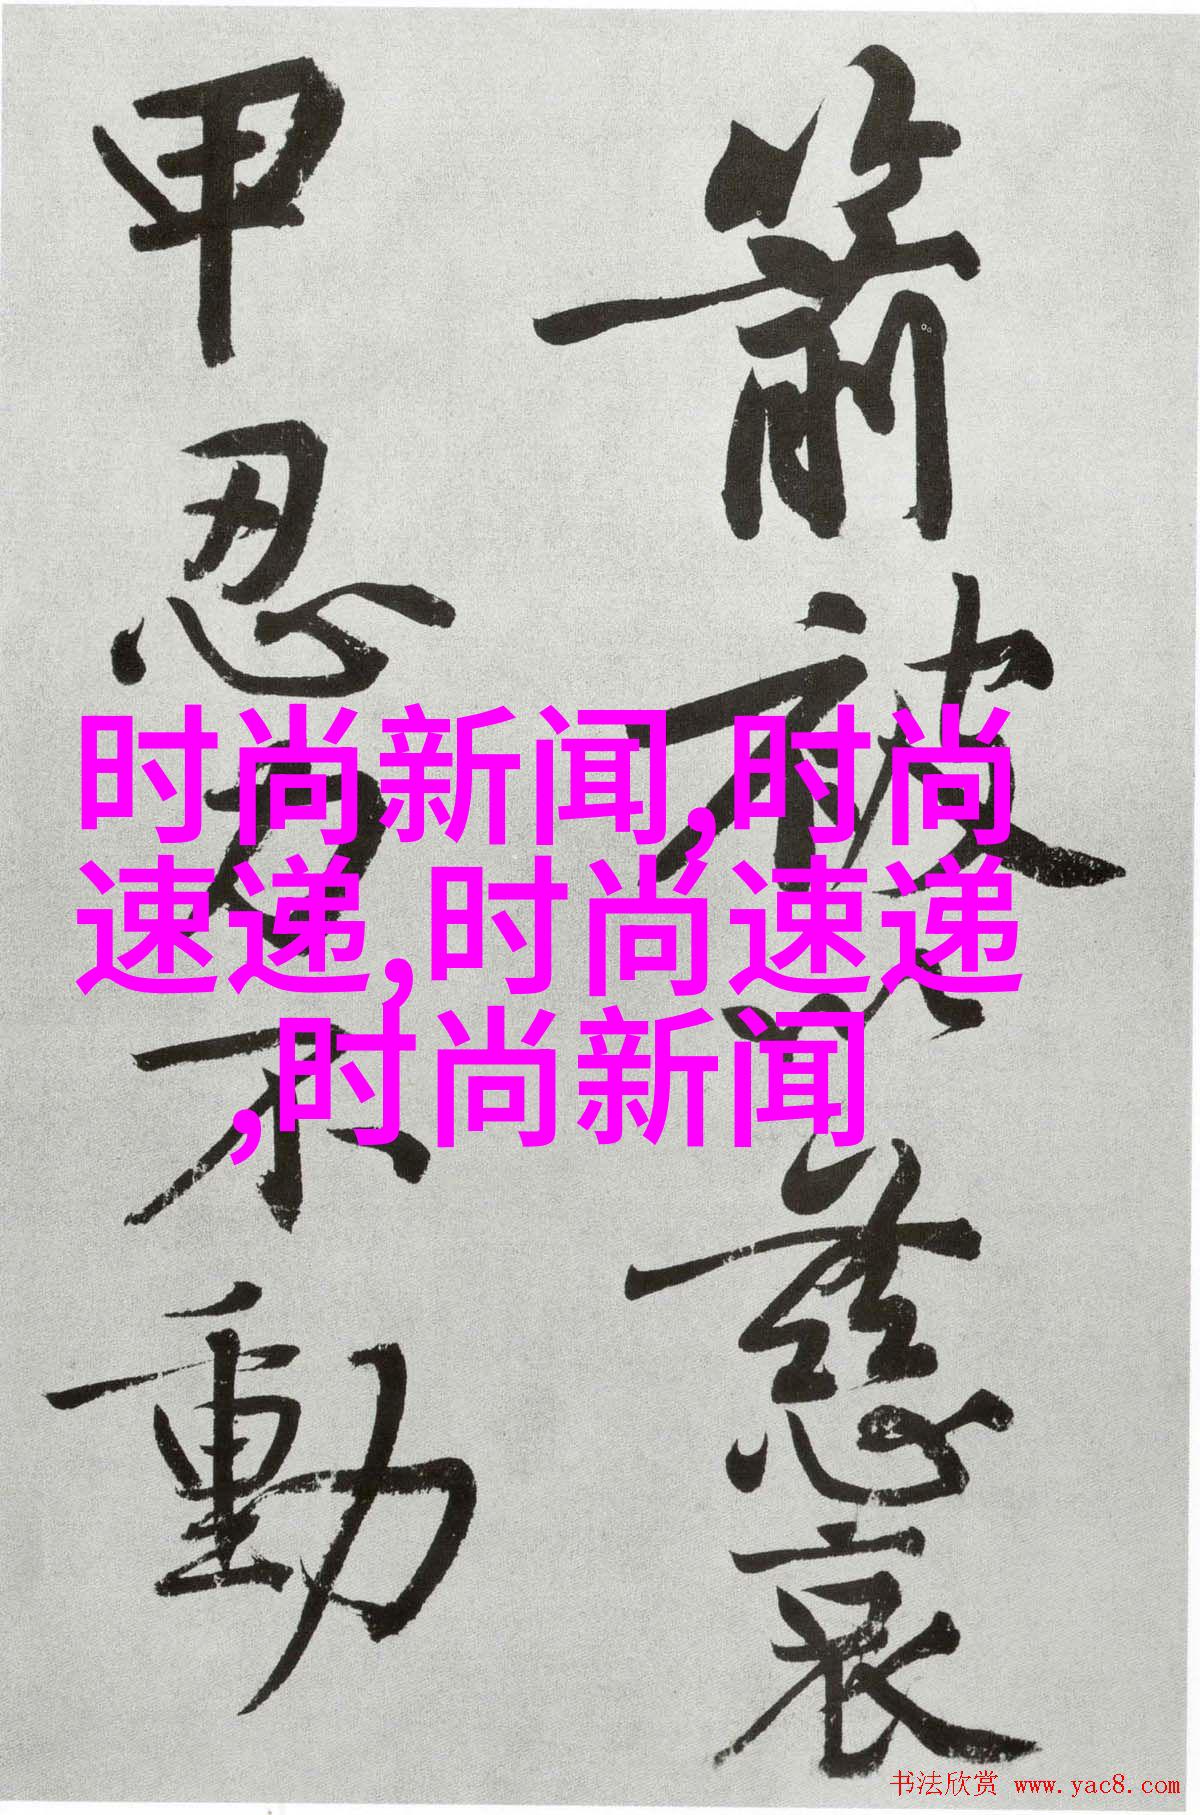 箭被以慈哀
甲忍力不動
时尚新闻,时尚
速递,时尚速递
,时尚新闻
书法欣赏 www.yac8.com